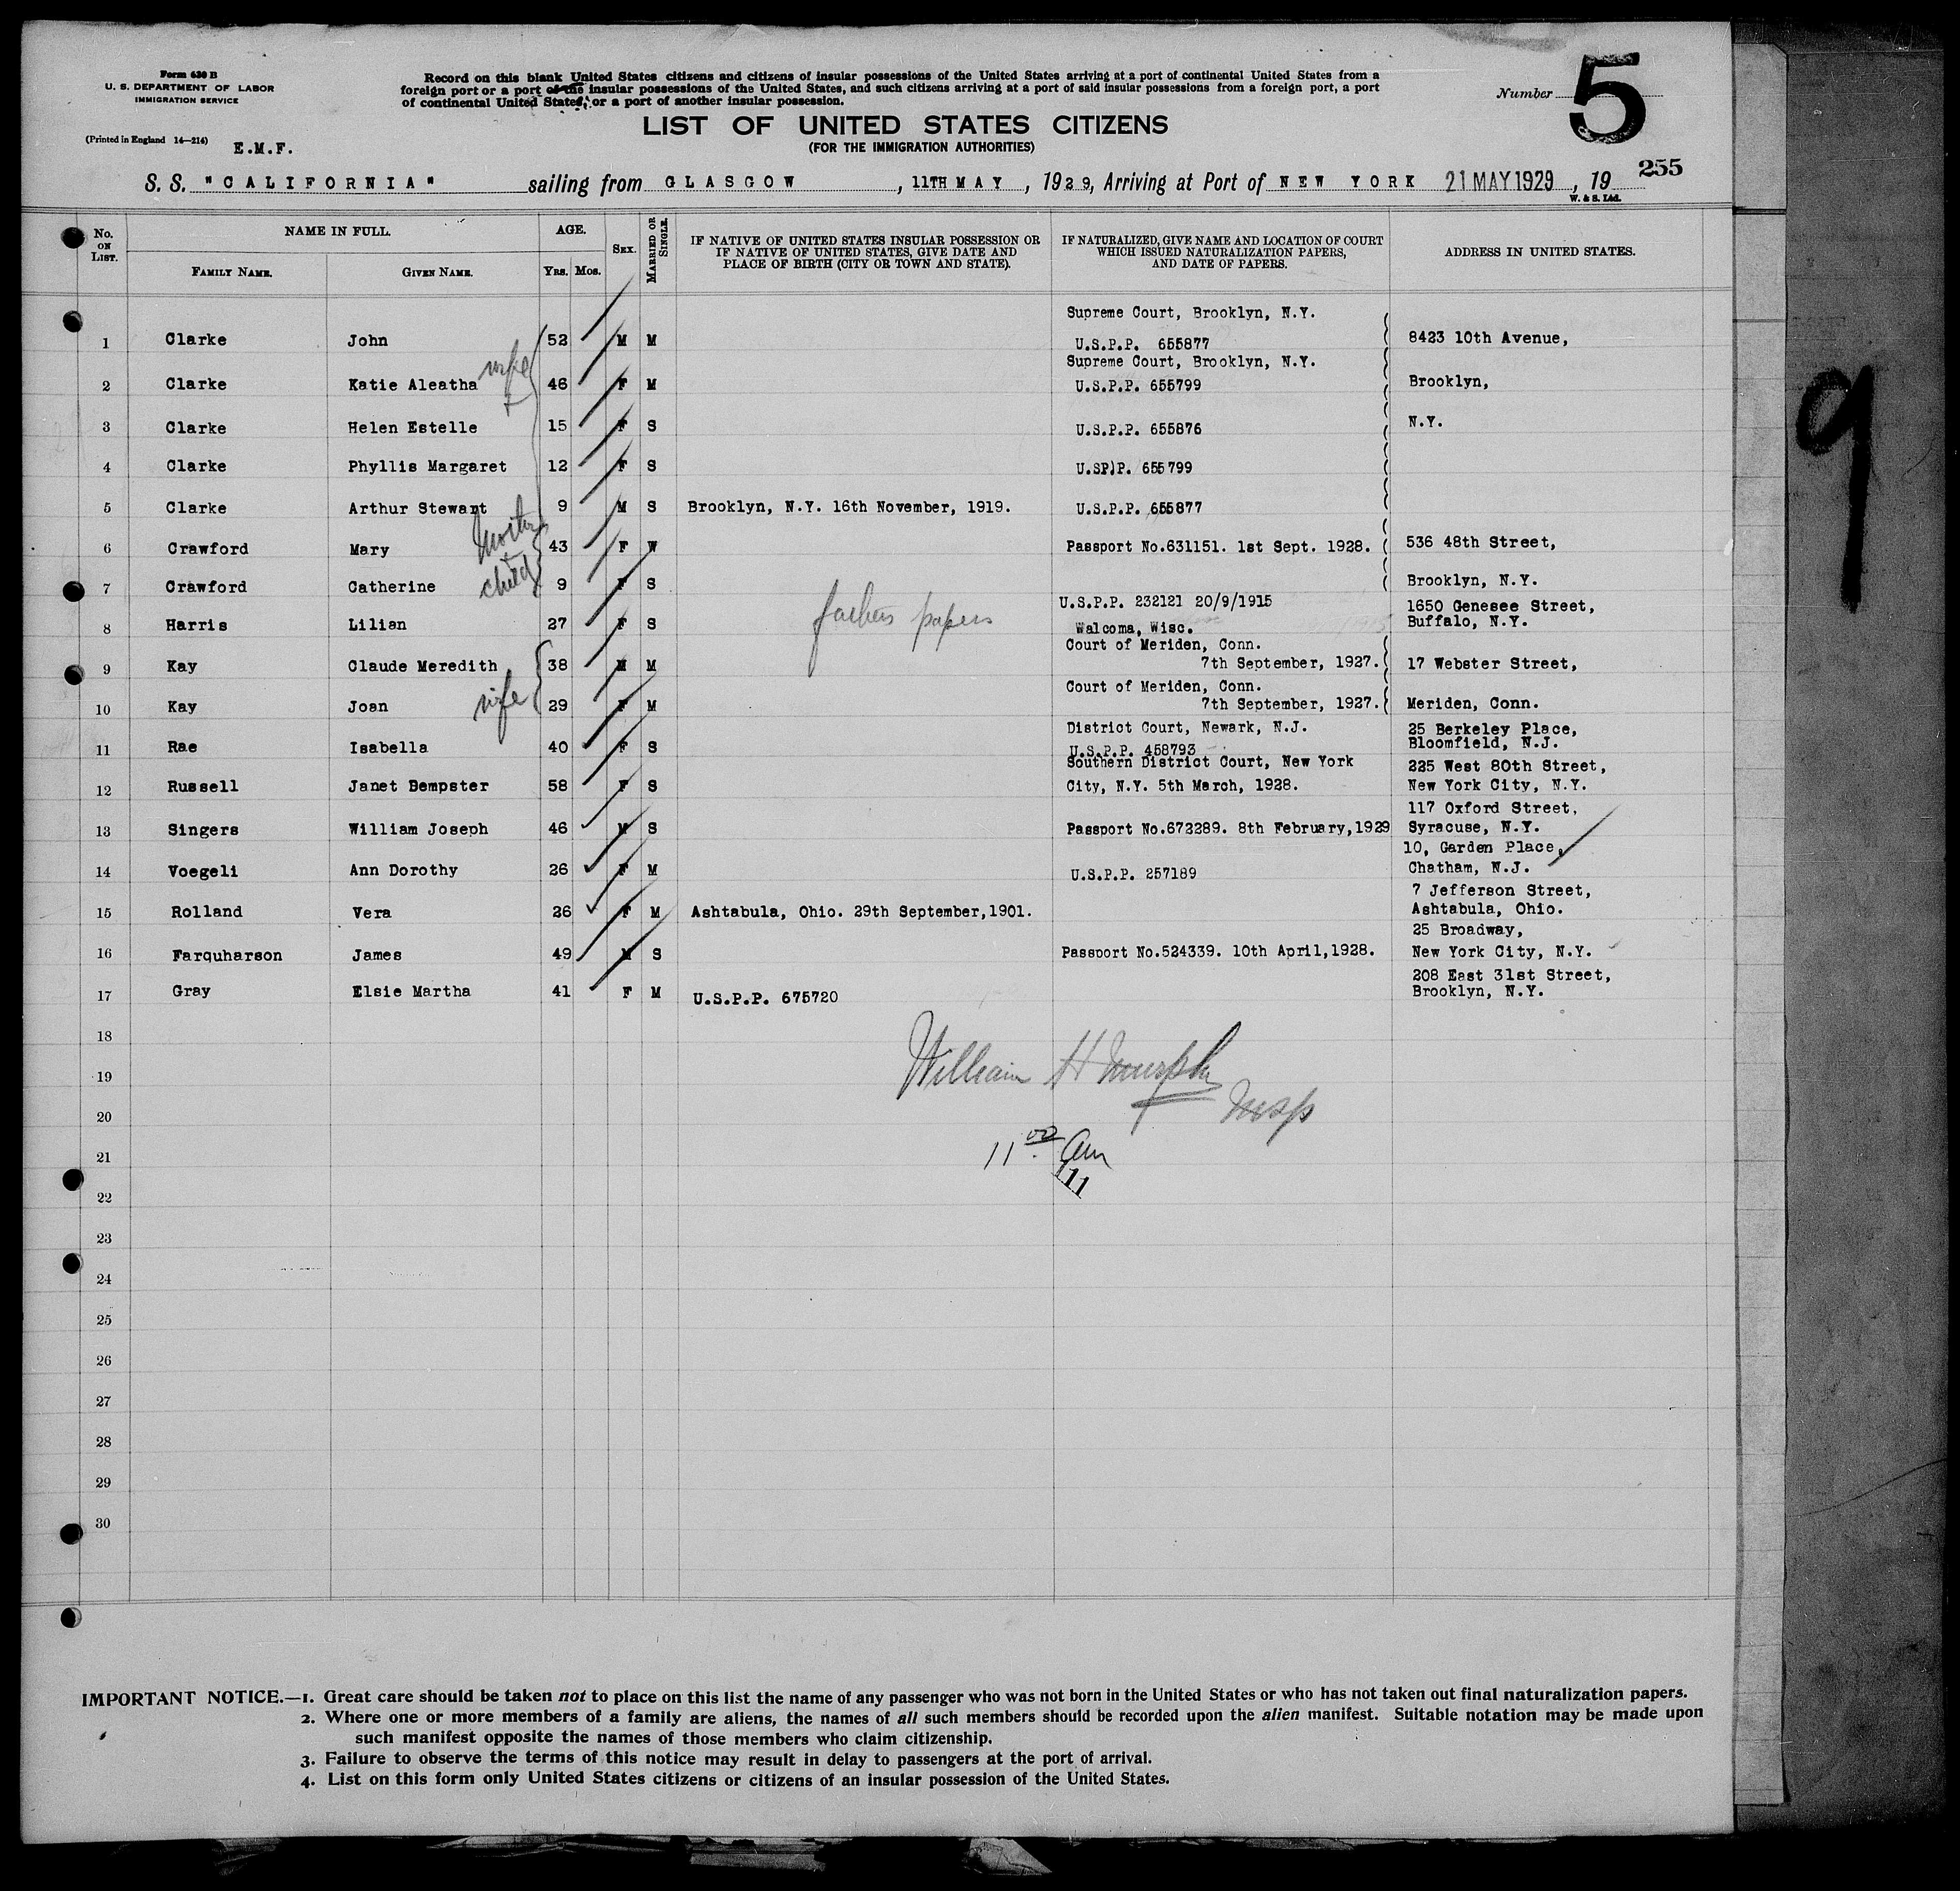 Form 630 B
U. S. DEPARTMENT OF LABOR
IMMIGRATION SERVICE
(Printed in England 14—214)
E.M.F.
Record on this blank United States citizens and citizens of insular possessions of the United States arriving at a port of continental United States from a
foreign port or a port of the insular possessions of the United States, and such citizens arriving at a port of said insular possessions from a foreign port, a port
of continental United States, or a port of another insular possession.
Number 5
LIST OF UNITED STATES CITIZENS
(FOR THE IMMIGRATION AUTHORITIES)
255
S. S. "CALIFORNIA" sailing from GLASGOW, 11TH MAY, 1929, Arriving at Port of NEW YORK 21 MAY 1929, 19
W. & S. Ltd.
No. ON LIST.
NAME IN FULL.
FAMILY NAME. GIVEN NAME.
AGE.
YRS. MOS.
SEX.
MARRIED OR SINGLE.
IF NATIVE OF UNITED STATES INSULAR POSSESSION OR
IF NATIVE OF UNITED STATES, GIVE DATE AND
PLACE OF BIRTH (CITY OR TOWN AND STATE).
IF NATURALIZED, GIVE NAME AND LOCATION OF COURT
WHICH ISSUED NATURALIZATION PAPERS,
AND DATE OF PAPERS.
ADDRESS IN UNITED STATES.
Supreme Court, Brooklyn, N.Y.
1 Clarke John 52 M M U.S.P.P. 655877 8423 10th Avenue,
Supreme Court, Brooklyn, N.Y.
2 Clarke Katie Aleatha wife 46 F M U.S.P.P. 655799 Brooklyn,
3 Clarke Helen Estelle 15 F S U.S.P.P. 655876 N.Y.
4 Clarke Phyllis Margaret 12 F S U.S.P.P. 655799
5 Clarke Arthur Stewart 9 M S Brooklyn, N.Y. 16th November, 1919. U.S.P.P. 655877
6 Crawford Mary 43 F W Passport No.631151. 1st Sept. 1928. 536 48th Street,
7 Crawford Catherine child 9 F S Brooklyn, N.Y.
fathers papers
U.S.P.P. 232121 20/9/1915 1650 Genesee Street,
8 Harris Lilian 27 F S Walcoma, Wisc. Buffalo, N.Y.
Court of Meriden, Conn.
9 Kay Claude Meredith 38 M M 7th September, 1927. 17 Webster Street,
Court of Meriden, Conn.
10 Kay Joan wife 29 F M 7th September, 1927. Meriden, Conn.
District Court, Newark, N.J. 25 Berkeley Place,
11 Rae Isabella 40 F S U.S.P.P. 458793 Bloomfield, N.J.
Southern District Court, New York 225 West 80th Street,
12 Russell Janet Dempster 58 F S City, N.Y. 5th March, 1928. New York City, N.Y.
117 Oxford Street,
13 Singers William Joseph 46 M S Passport No.672289. 8th February,1929 Syracuse, N.Y.
10, Garden Place,
14 Voegeli Ann Dorothy 26 F M U.S.P.P. 257189 Chatham, N.J.
7 Jefferson Street,
15 Rolland Vera 26 F M Ashtabula, Ohio. 29th September,1901. Ashtabula, Ohio.
25 Broadway,
16 Farquharson James 49 M S Passport No.524339. 10th April,1928. New York City, N.Y.
208 East 31st Street,
17 Gray Elsie Martha 41 F M U.S.P.P. 675720 Brooklyn, N.Y.
18
19
20
21
22
23
24
25
26
27
28
29
30
William H Murphy
Insp
11 00 am
11
9
IMPORTANT NOTICE.—1. Great care should be taken not to place on this list the name of any passenger who was not born in the United States or who has not taken out final naturalization papers.
2. Where one or more members of a family are aliens, the names of all such members should be recorded upon the alien manifest. Suitable notation may be made upon
such manifest opposite the names of those members who claim citizenship.
3. Failure to observe the terms of this notice may result in delay to passengers at the port of arrival.
4. List on this form only United States citizens or citizens of an insular possession of the United States.